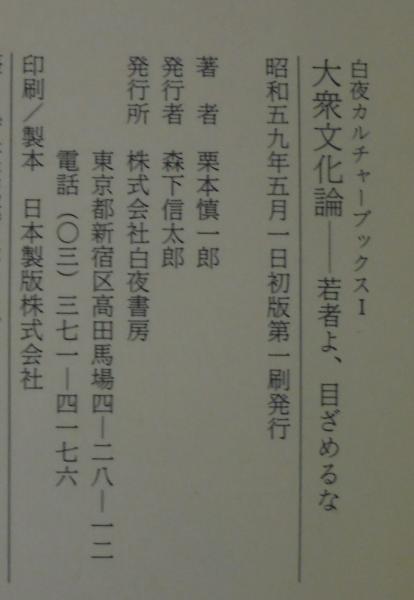 白夜カルチャーブックスⅠ
大衆文化論——若者よ、目ざめるな
昭和五九年五月一日初版第一刷発行
著　者　栗本慎一郎
発行者　森下信太郎
発行所　株式会社白夜書房
東京都新宿区高田馬場四—二八—一二
電話（〇三）三七一—四一七六
印刷／製本　日本製版株式会社